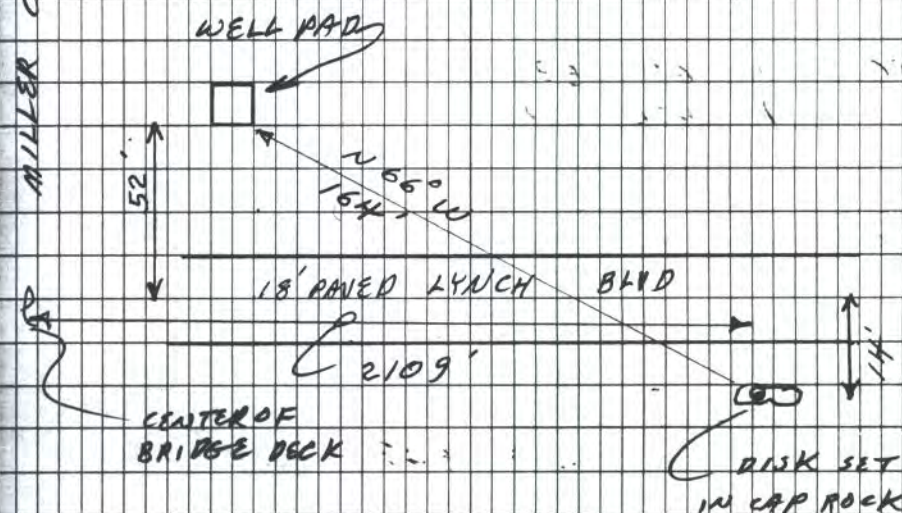 WELL PAD
MILLER
52'
N 66° W
164'
18' PAVED LYNCH BLVD
2109'
14'
CENTER OF
BRIDGE DECK
DISK SET
IN CAP ROCK